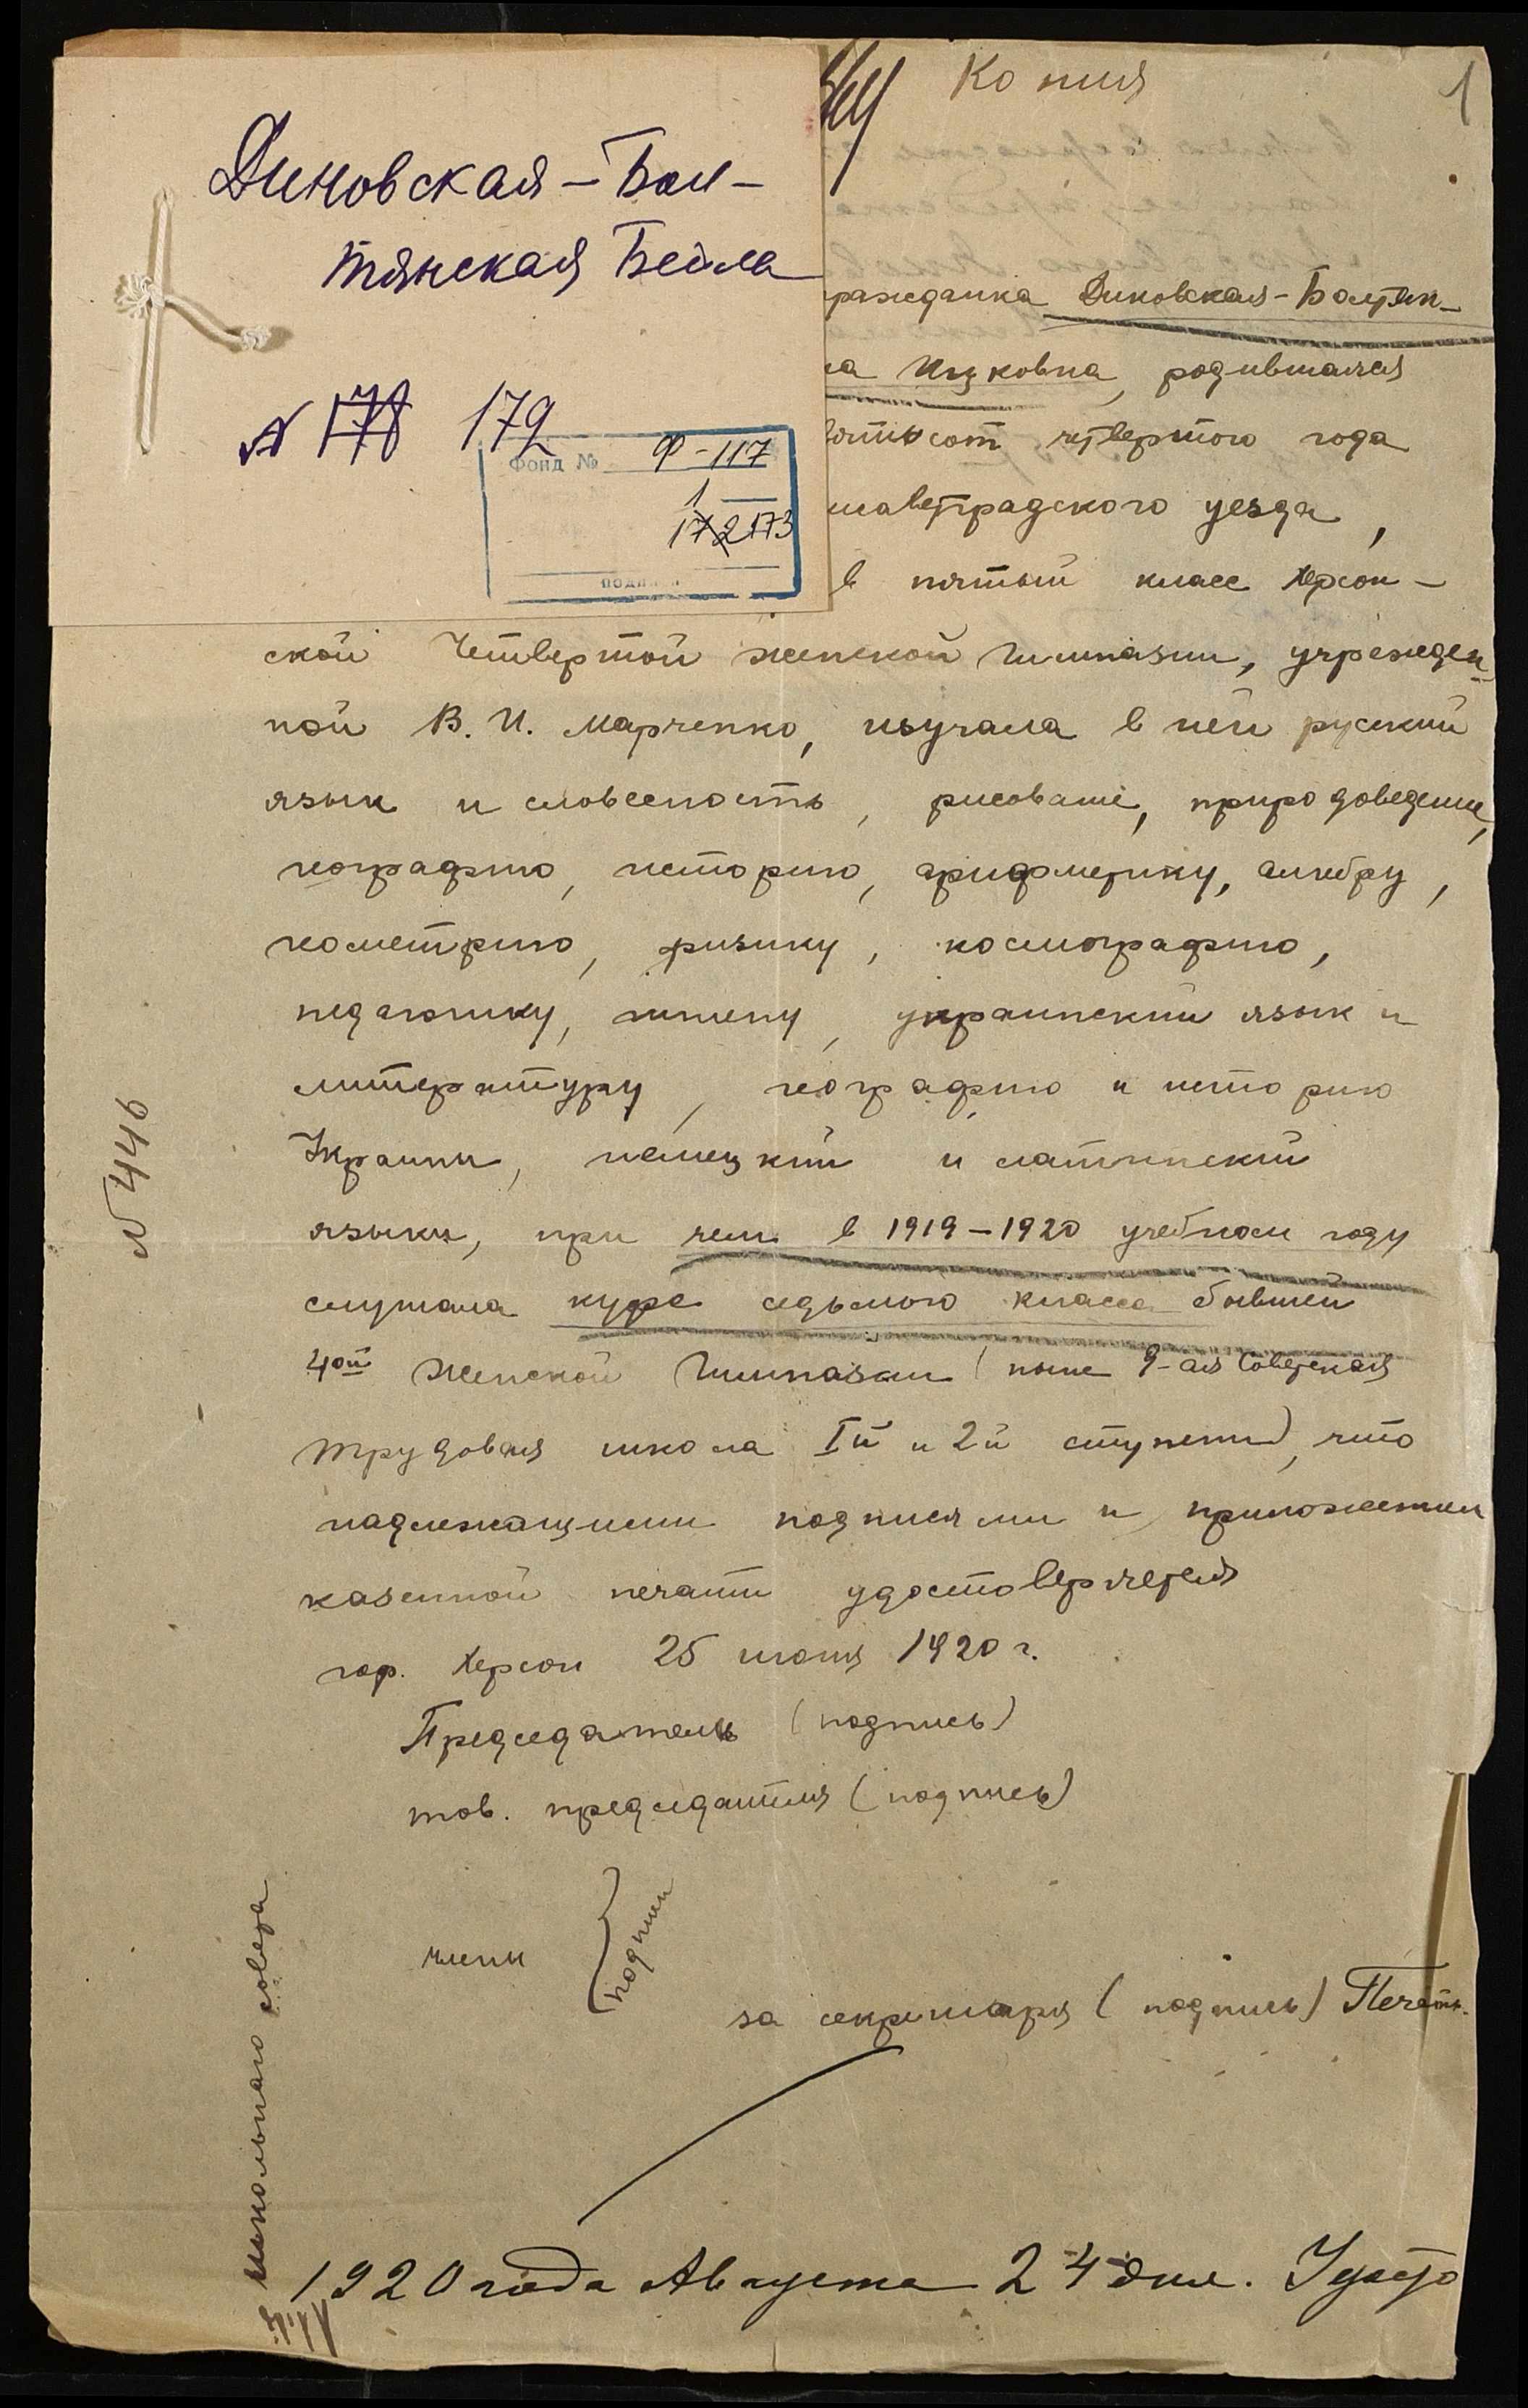 Диновская-Бол-
тянская Бейла
N 178 179
Фонд № Ф-117
1
172 173
Копия
1
гражданка Диновская-Болтян-
на Ицковна, родившаяся
вятьсот четвертого года
исаветградского уезда,
в пятый класс Херсон-
ской Четвертой женской Гимназии, учрежден-
ной В. И. Марченко, изучала в ней русский
язык и словесность, рисование, природоведение,
географию, историю, арифметику, алгебру,
геометрию, физику, космографию,
педагогику, гигиену, украинский язык и
литературу, географию и историю
Украины, немецкий и латинский
языки, при чем в 1919-1920 учебном году
слушала курс седьмого класса бывшей
4ой Женской Гимназии (ныне 9-ая Советская
трудовая школа Iй и 2й ступени), что
надлежащими подписями и приложением
казенной печати удостоверяется
гор. Херсон 25 июня 1920 г.
Председатель (подпись)
тов. председателя (подпись)
члены } подписи
за секретаря (подпись) Печать.
школьного совета
N 446
1920 года Августа 24 дня. Удосто